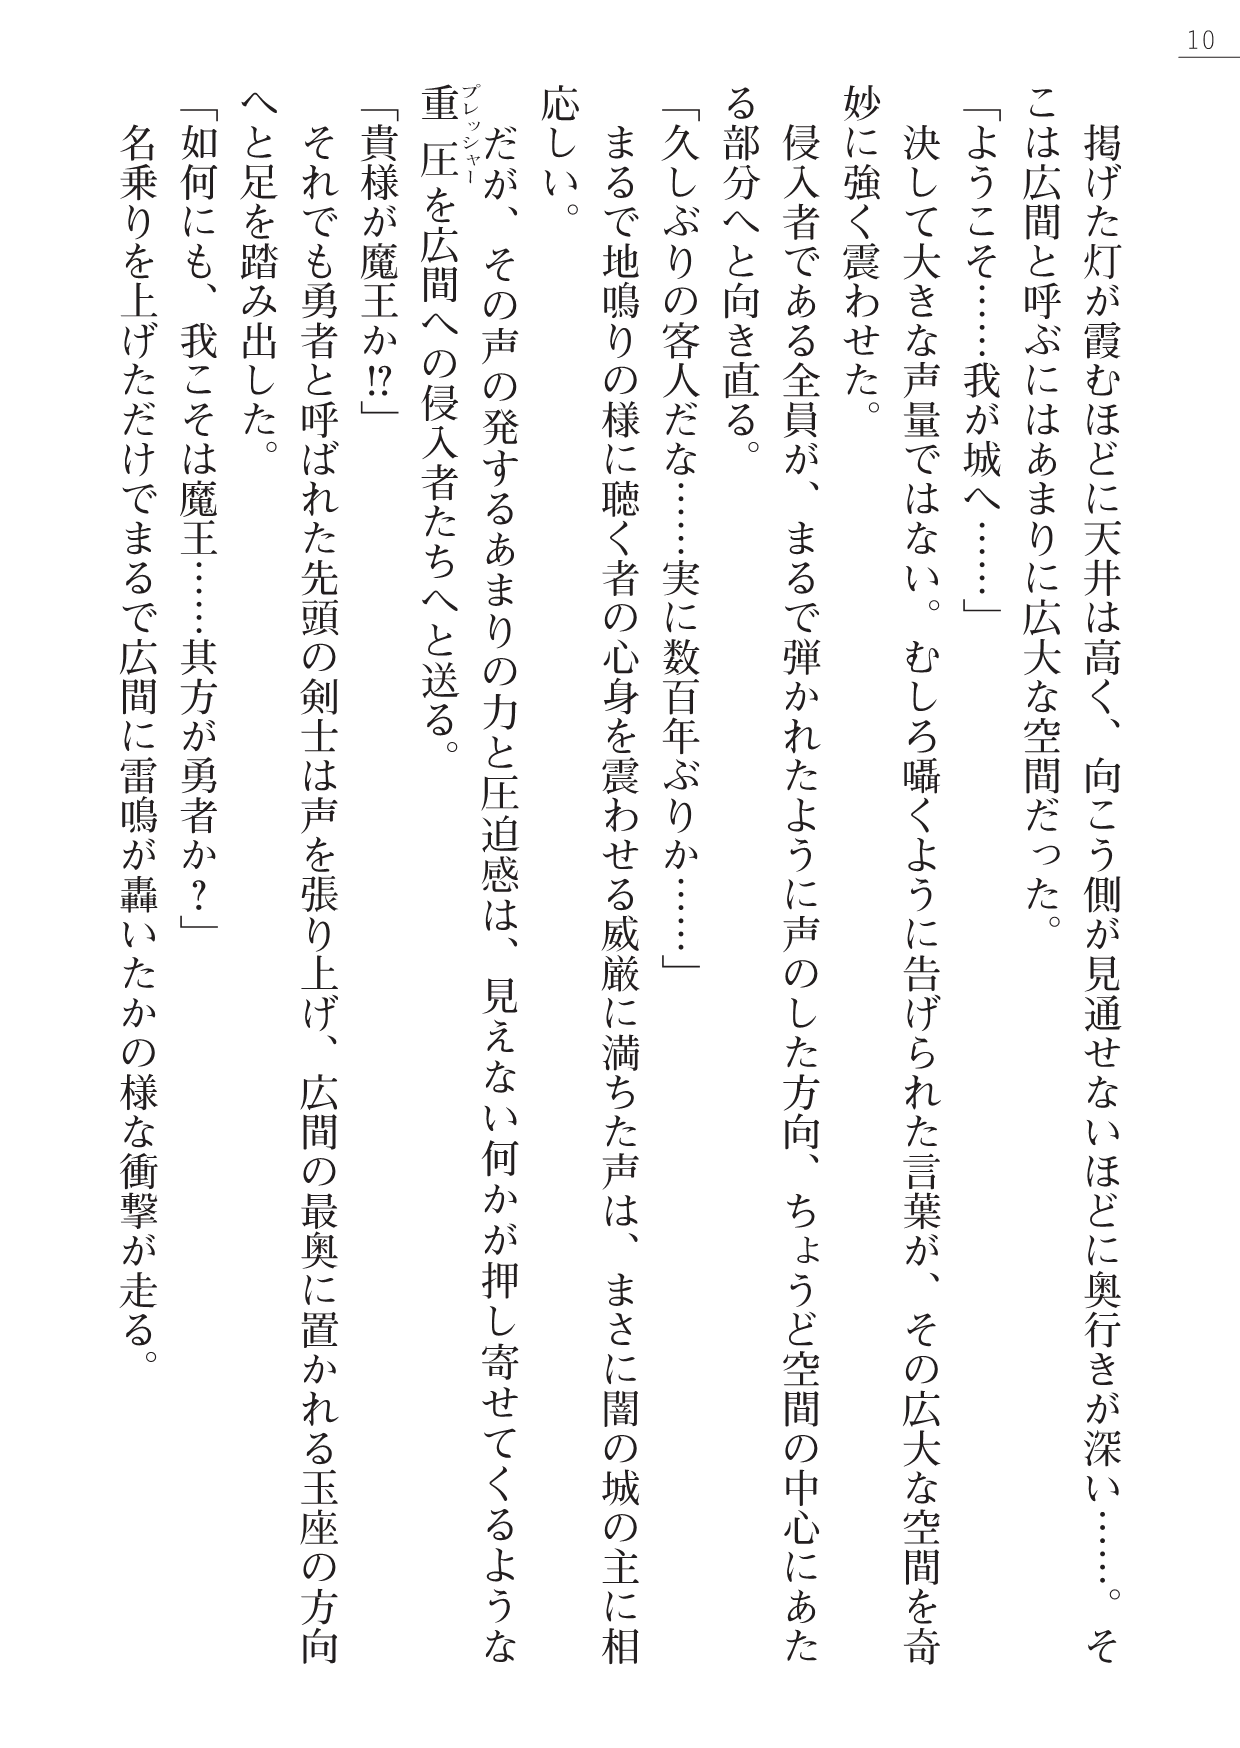 10
掲げた灯が霞むほどに天井は高く、向こう側が見通せないほどに奥行きが深い……。そ
こは広間と呼ぶにはあまりに広大な空間だった。
「ようこそ……我が城へ……」
決して大きな声量ではない。むしろ囁くように告げられた言葉が、その広大な空間を奇
妙に強く震わせた。
侵入者である全員が、まるで弾かれたように声のした方向、ちょうど空間の中心にあた
る部分へと向き直る。
「久しぶりの客人だな……実に数百年ぶりか……」
まるで地鳴りの様に聴く者の心身を震わせる威厳に満ちた声は、まさに闇の城の主に相
応しい。
だが、その声の発するあまりの力と圧迫感は、見えない何かが押し寄せてくるような
プレッシャー
重圧を広間への侵入者たちへと送る。
「貴様が魔王か⁉」
それでも勇者と呼ばれた先頭の剣士は声を張り上げ、広間の最奥に置かれる玉座の方向
へと足を踏み出した。
「如何にも、我こそは魔王……其方が勇者か？」
名乗りを上げただけでまるで広間に雷鳴が轟いたかの様な衝撃が走る。